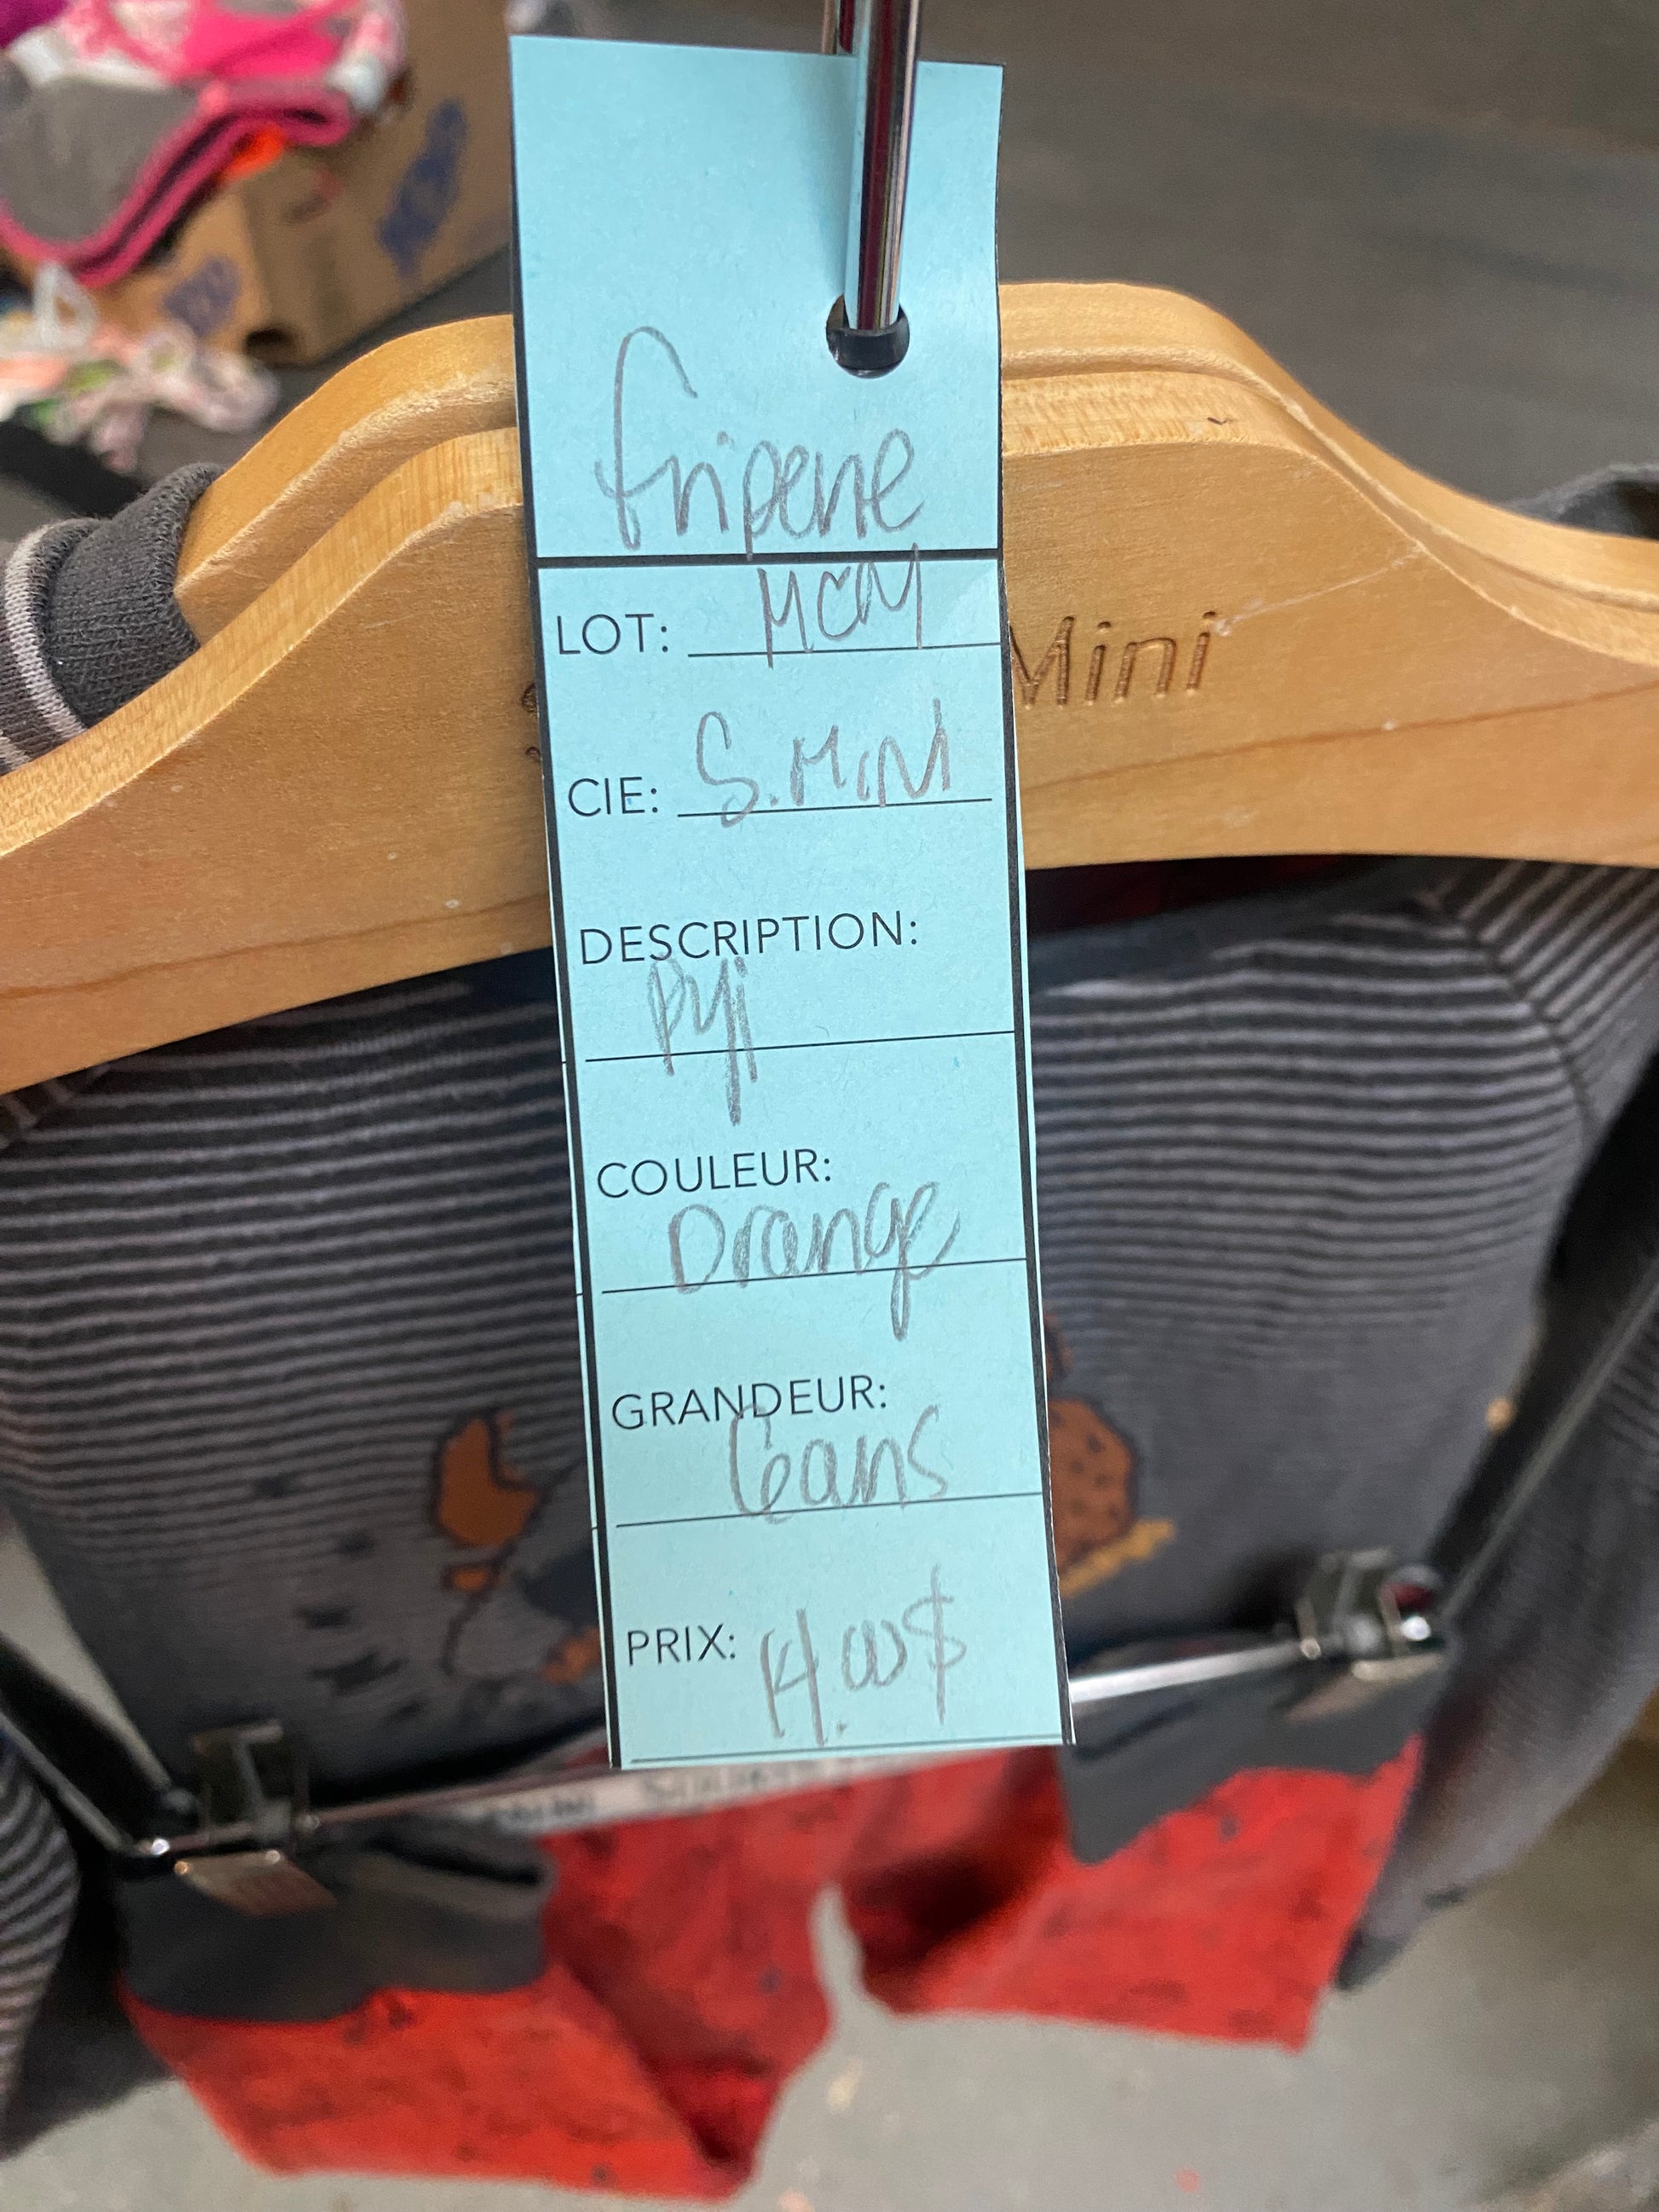 friperie
LOT: MCM
Mini
CIE: S.MINI
DESCRIPTION:
pyj
COULEUR:
Orange
GRANDEUR:
6ans
PRIX: 14.00$